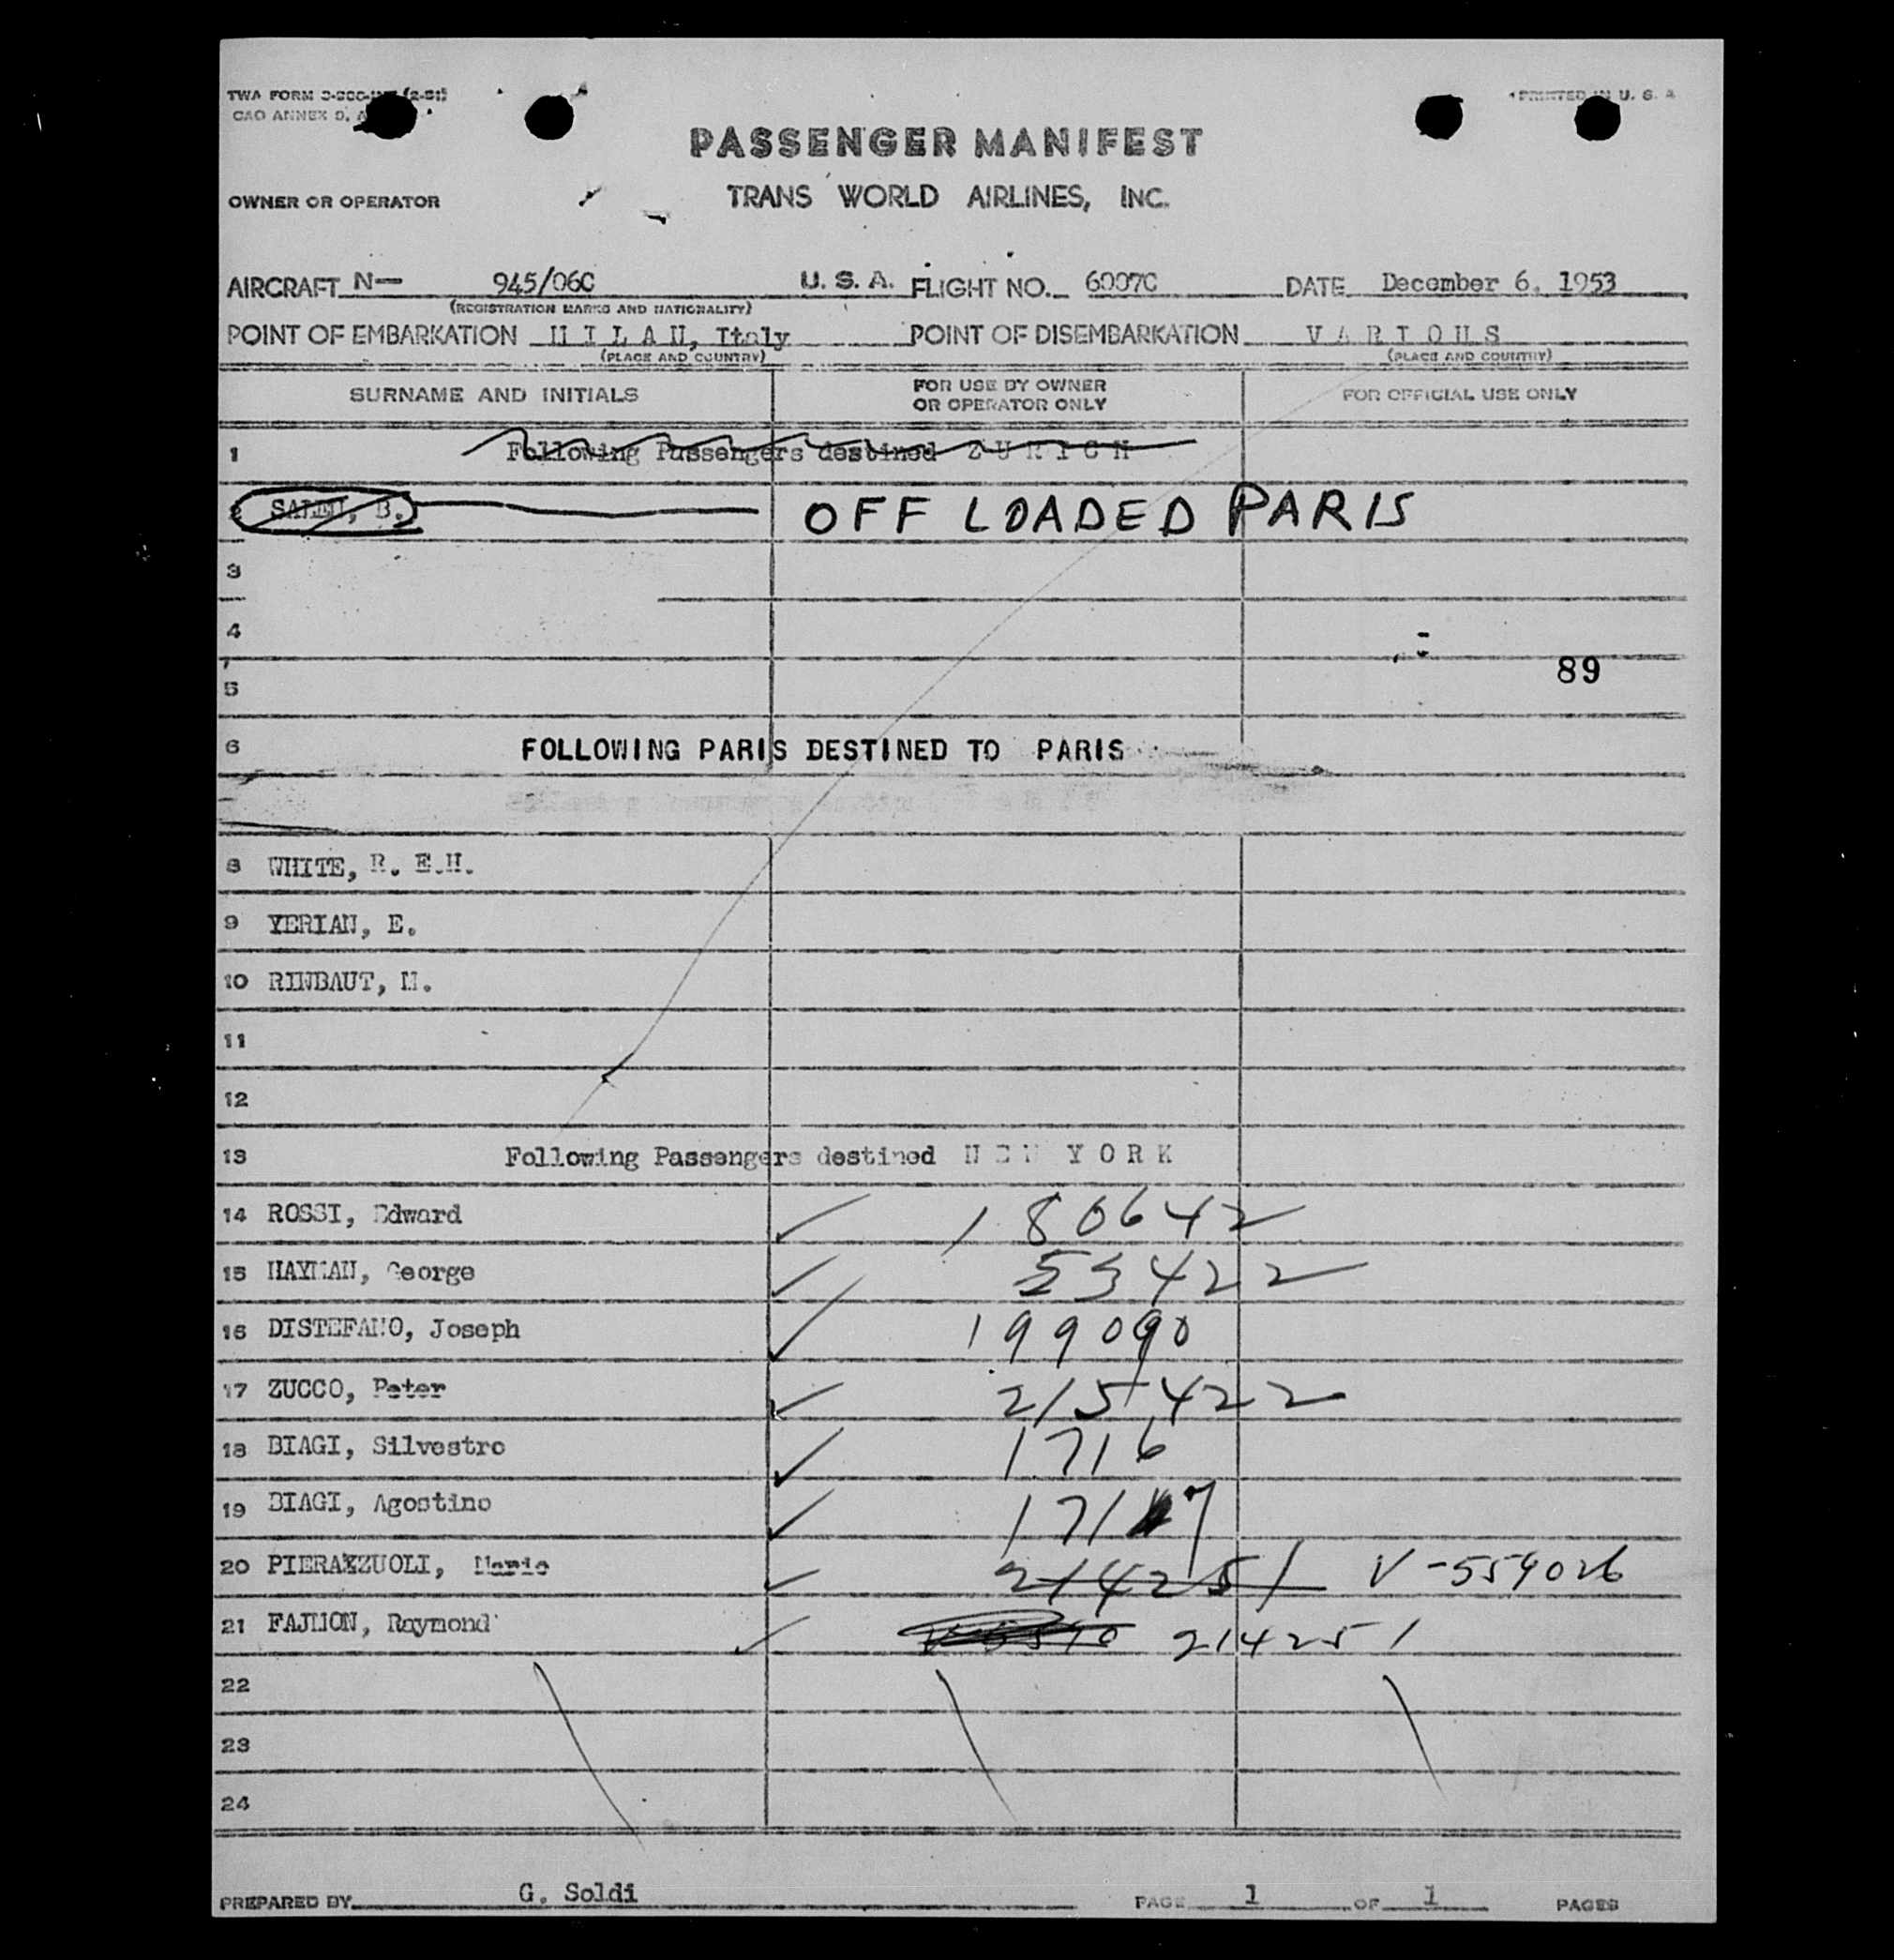 TWA FORM
PRINTED IN U. S. A
CAO ANNEX 9, A
PASSENGER MANIFEST
OWNER OR OPERATOR
TRANS WORLD AIRLINES, INC.
AIRCRAFT N— 945/06C U. S. A. FLIGHT NO. 6007C DATE December 6, 1953
(REGISTRATION MARKS AND NATIONALITY)
POINT OF EMBARKATION M I L A N, Italy POINT OF DISEMBARKATION V A R I O U S
(PLACE AND COUNTRY) (PLACE AND COUNTRY)
SURNAME AND INITIALS FOR USE BY OWNER OR OPERATOR ONLY FOR OFFICIAL USE ONLY
1 Following Passengers destined Z U R I C H
B. OFF LOADED PARIS
3
4
89
5
6 FOLLOWING PARIS DESTINED TO PARIS
8 WHITE, R. E.H.
9 YERIAN, E.
10 RIMBAUT, M.
11
12
13 Following Passengers destined N E W Y O R K
14 ROSSI, Edward 180642
15 HAYMAN, George 53422
16 DISTEFANO, Joseph 199090
17 ZUCCO, Peter 215422
18 BIAGI, Silvestro 1716
19 BIAGI, Agostino 1717
20 PIERAZZUOLI, Mario 214251 V-559026
21 FAJMON, Raymond 214251
22
23
24
PREPARED BY G. Soldi PAGE 1 OF 1 PAGES